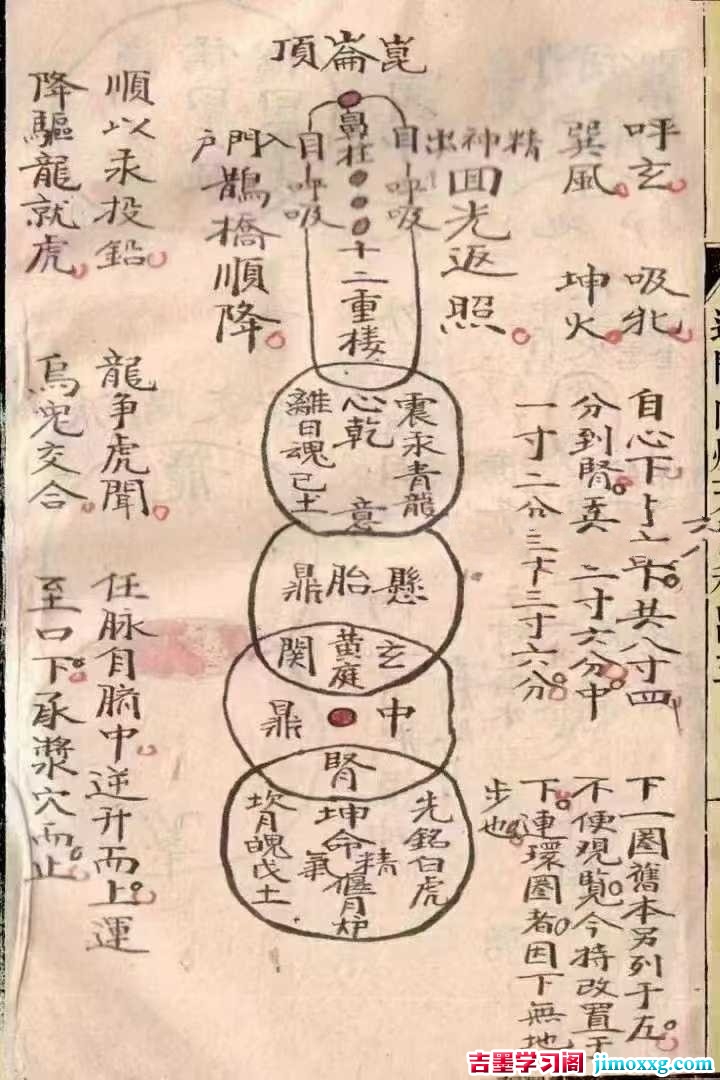 崑崙頂
呼玄。
巽風。
吸牝。
坤火。
精神出
自呼吸
回光返照。
鼻柱
十二重楼
自呼吸
入門户
鵲橋順降。
順以汞投鉛。
降驅龍就虎。
震汞青龍
心乾
意
離日魂己土
自心下
共八寸四
分到腎。
二寸六分中。
一寸二分
三寸六分。
龍争虎聞。
烏兎交合。
懸胎鼎
玄
黄庭
関
中鼎
任脉自臍中。逆升而上。運
至口下。承漿穴而止。
腎
坤命
精
氣
偃月炉
白虎
魄戊土
下一圈舊本另列于左。
不便观覧。今持改置于
下。連環圈者。因下無地
步也。
吉墨学习阁 jimoxxg.com